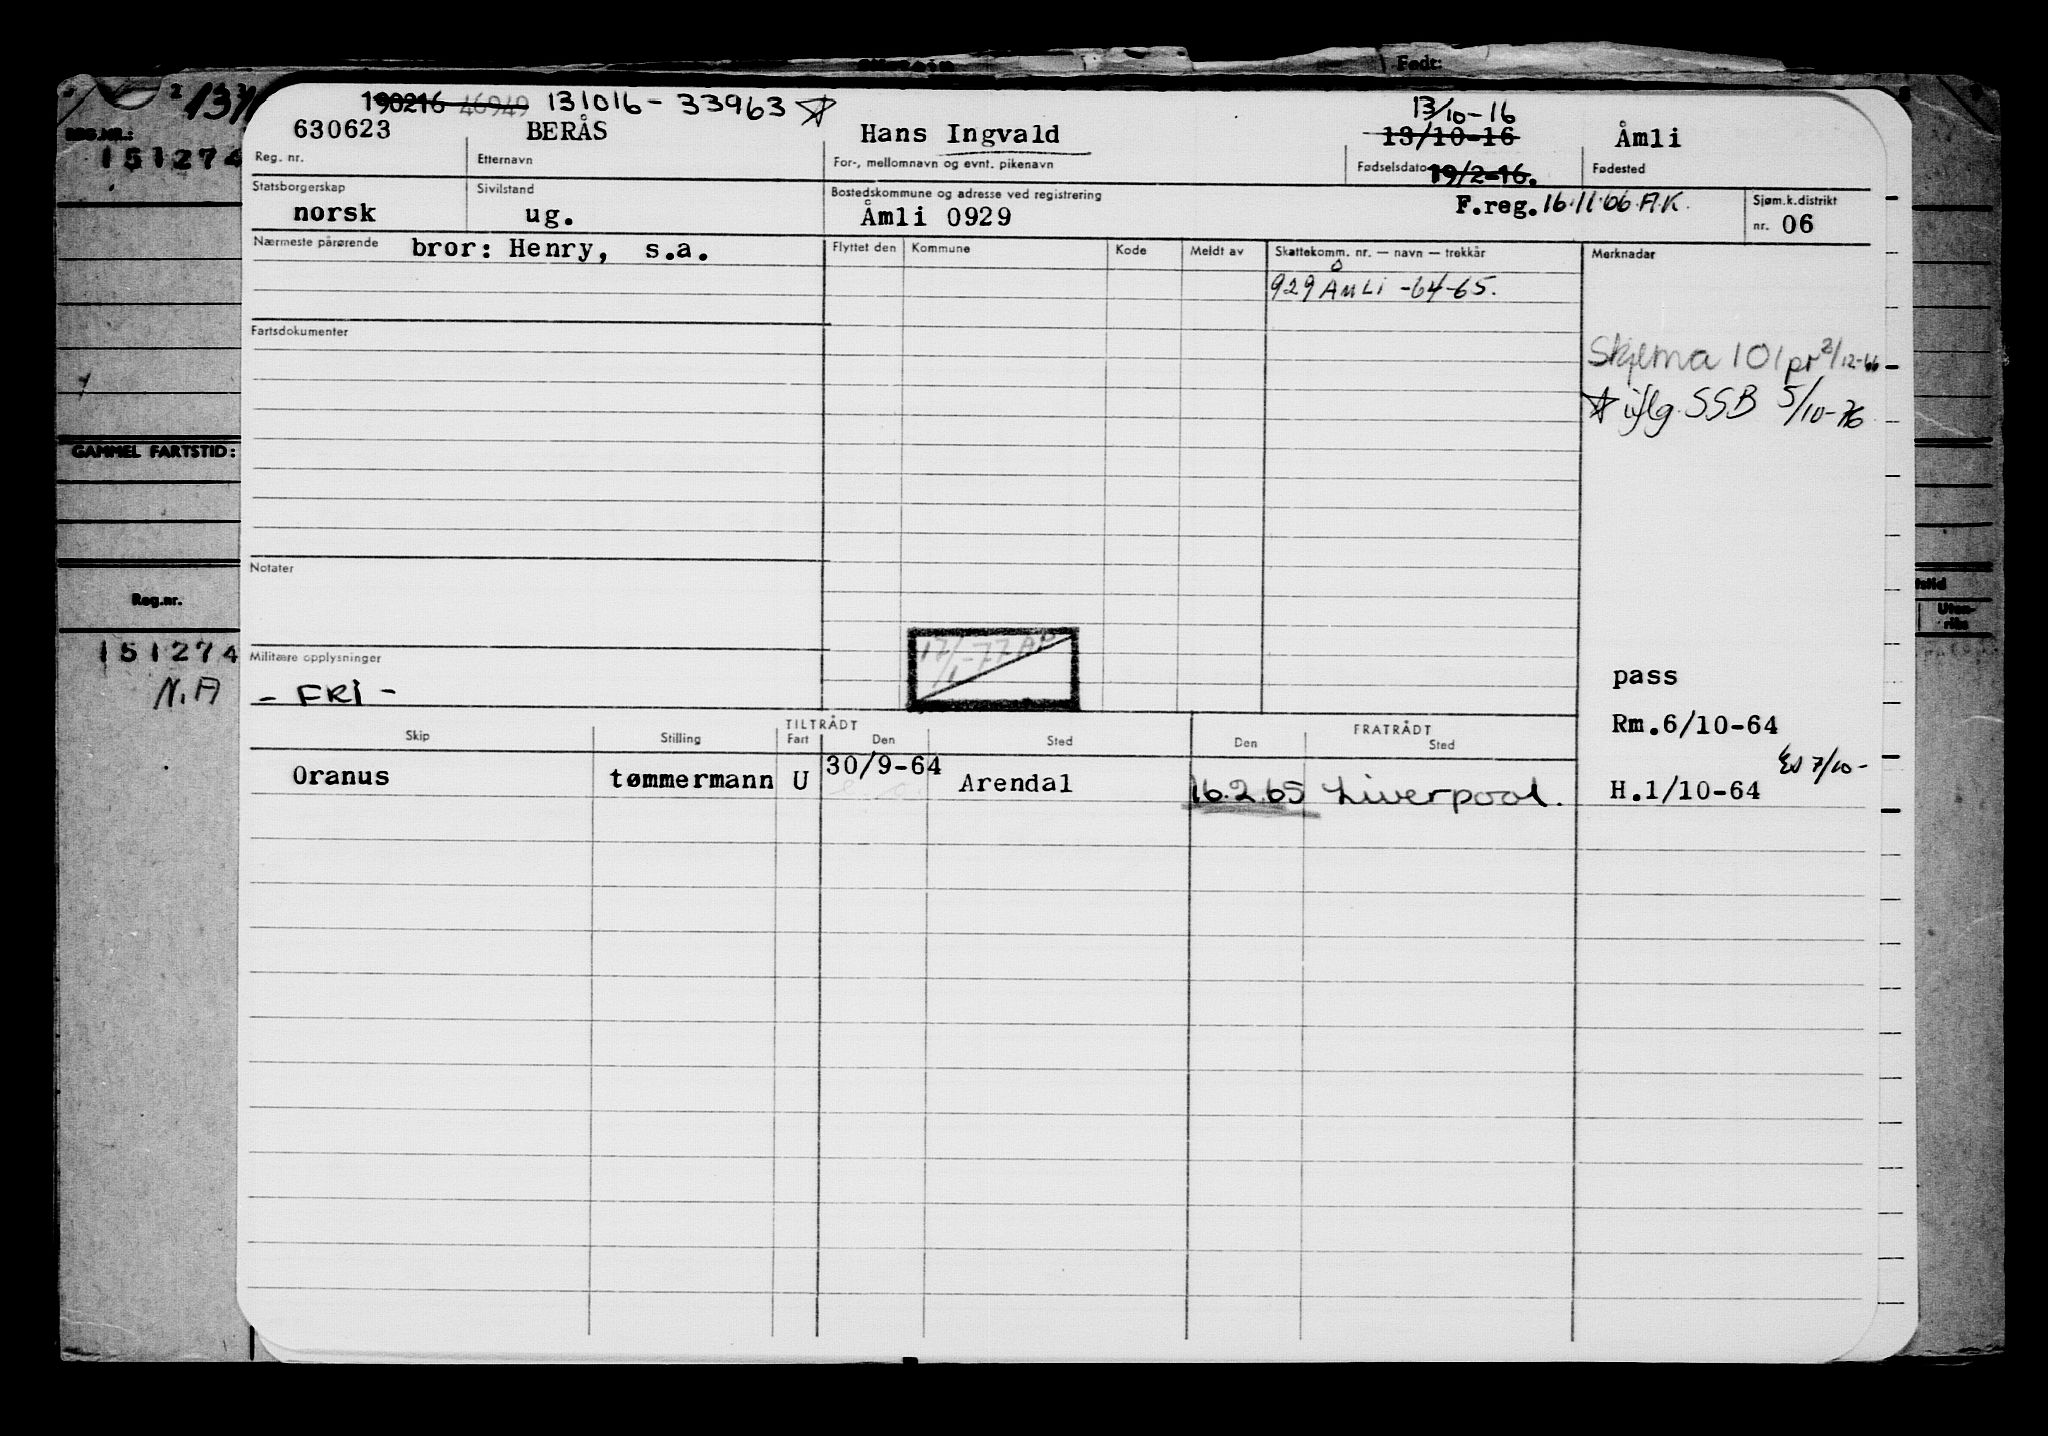 Født:
190216 46949 131016-33963 ☆ 13/10-16
630623 BERÅS Hans Ingvald 13/10-16 Åmli
Reg. nr. Etternavn For-, mellomnavn og evnt. pikenavn Fødselsdato 19/2-16. Fødested
Statsborgerskap Sivilstand Bostedskommune og adresse ved registrering Sjøm.k.distrikt
norsk ug. Åmli 0929 F.reg. 16.11.66 A.K. nr. 06
Nærmeste pårørende bror: Henry, s.a. Flyttet den Kommune Kode Meldt av Skattekomm. nr. — navn — trekkår Merknadar
929 ÅMLI -64-65.
Fartsdokumenter
Skjema 101 pr 2/12-66
☆ iflg. SSB 5/10-76
Notater
17/1-77 AP
Militære opplysninger
- FRI -
pass
Rm.6/10-64
TILTRÅDT FRATRÅDT
Skip Stilling Fart Den Sted Den Sted
Oranus tømmermann U 30/9-64 Arendal 16.2.65 Liverpool. H.1/10-64 7/10-
REG.NR.:
151274
GAMMEL FARTSTID:
Reg.nr.
151274
N.A
Uten-
riks